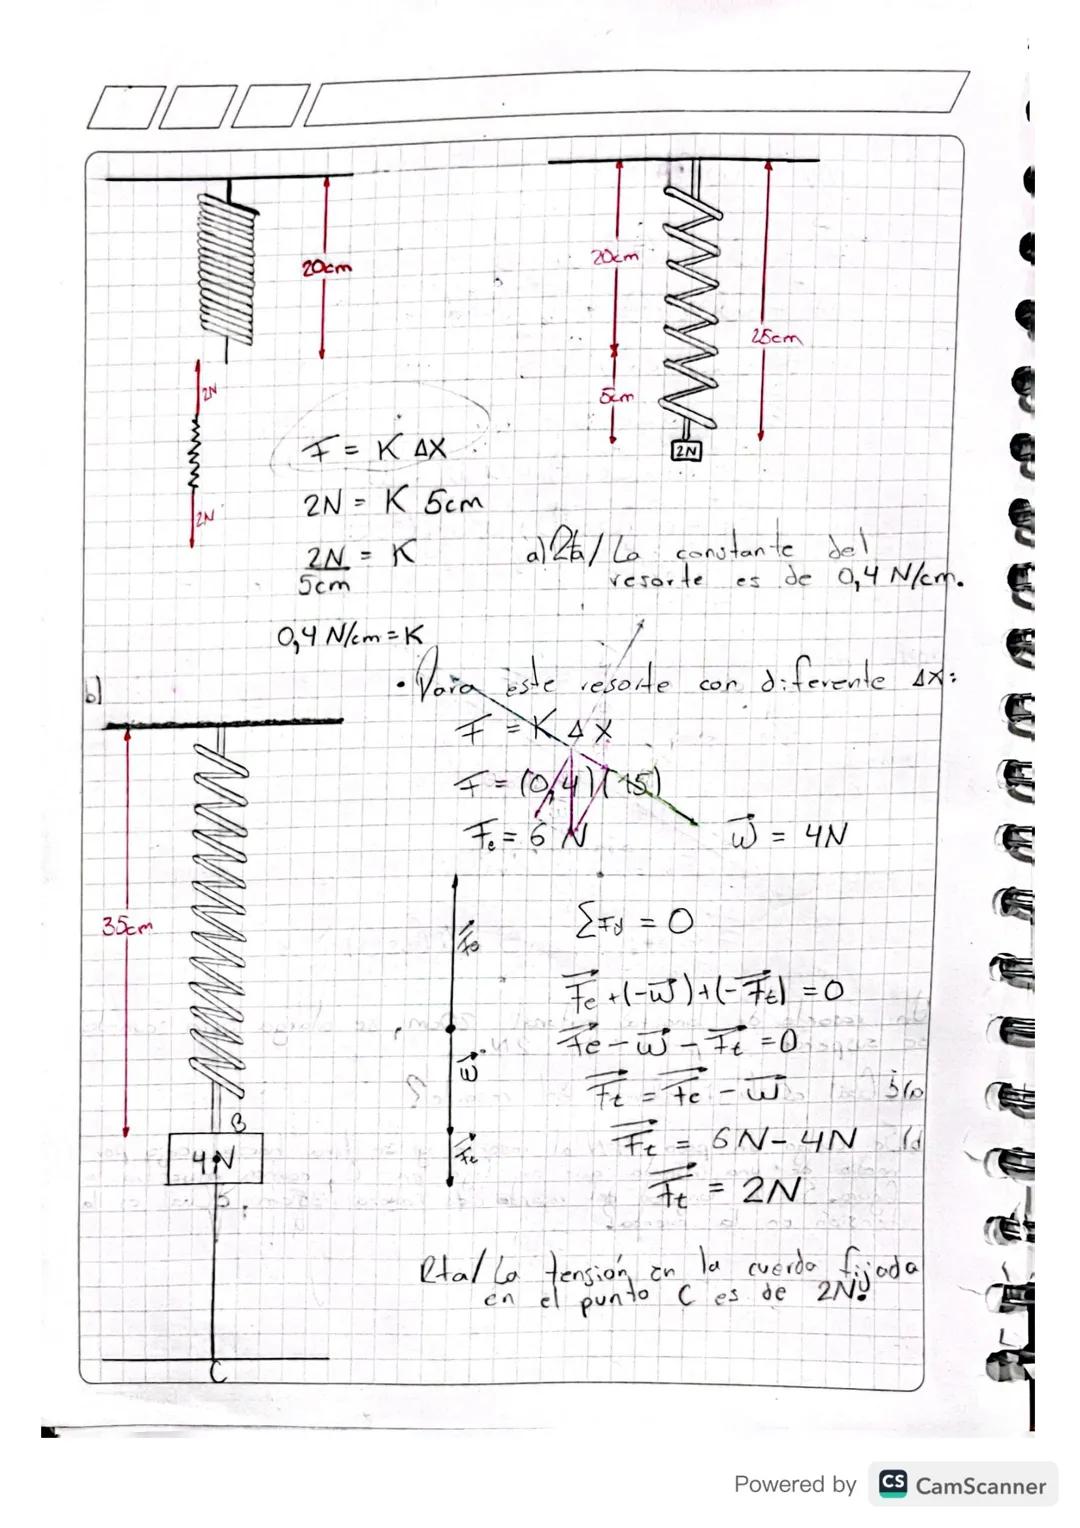 20cm
20cm
25cm
5cm
2N
2N
2N
F = K ΔX
2N = K 5cm
2N = K
5cm
0,4 N/cm = K
a) Rta/ La constante del
resorte es de 0,4 N/cm.
b)
• Para este resorte con diferente ΔX:
F = K Δ X
F = (0,4)(15)
Fe = 6 N
w = 4N
35cm
Fe
w
Ft
ΣFy = 0
Fe + (-w) + (-Ft) = 0
Fe - w - Ft = 0
Ft = Fe - w
Ft = 6N - 4N
Ft = 2N
B
4N
C
Rta/ La tensión en la cuerda fijada
en el punto C es de 2N.
Powered by CS CamScanner